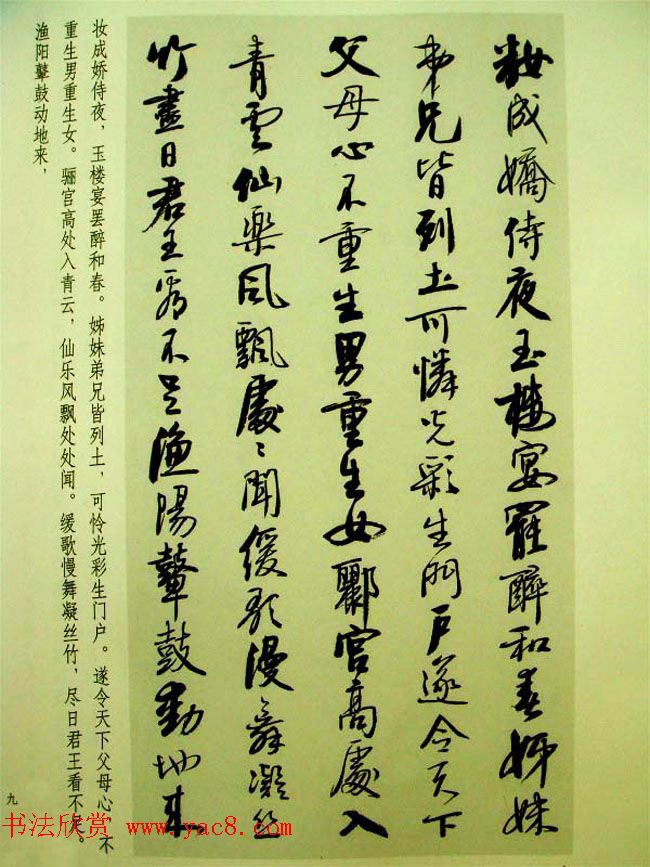 粧成嬌侍夜玉樓宴罷醉和春姊妹
弟兄皆列土可憐光彩生門戶遂令天下
父母心不重生男重生女酈宮高處入
青雲仙樂風飄處〻聞緩歌漫舞凝丝
竹盡日君王看不足漁陽鼙鼓動地來
妆成娇侍夜，玉楼宴罢醉和春。姊妹弟兄皆列土，可怜光彩生门户。遂令天下父母心，不
重生男重生女。骊宫高处入青云，仙乐风飘处处闻。缓歌慢舞凝丝竹，尽日君王看不足。
渔阳鼙鼓动地来，
九
书法欣赏 www.yac8.com